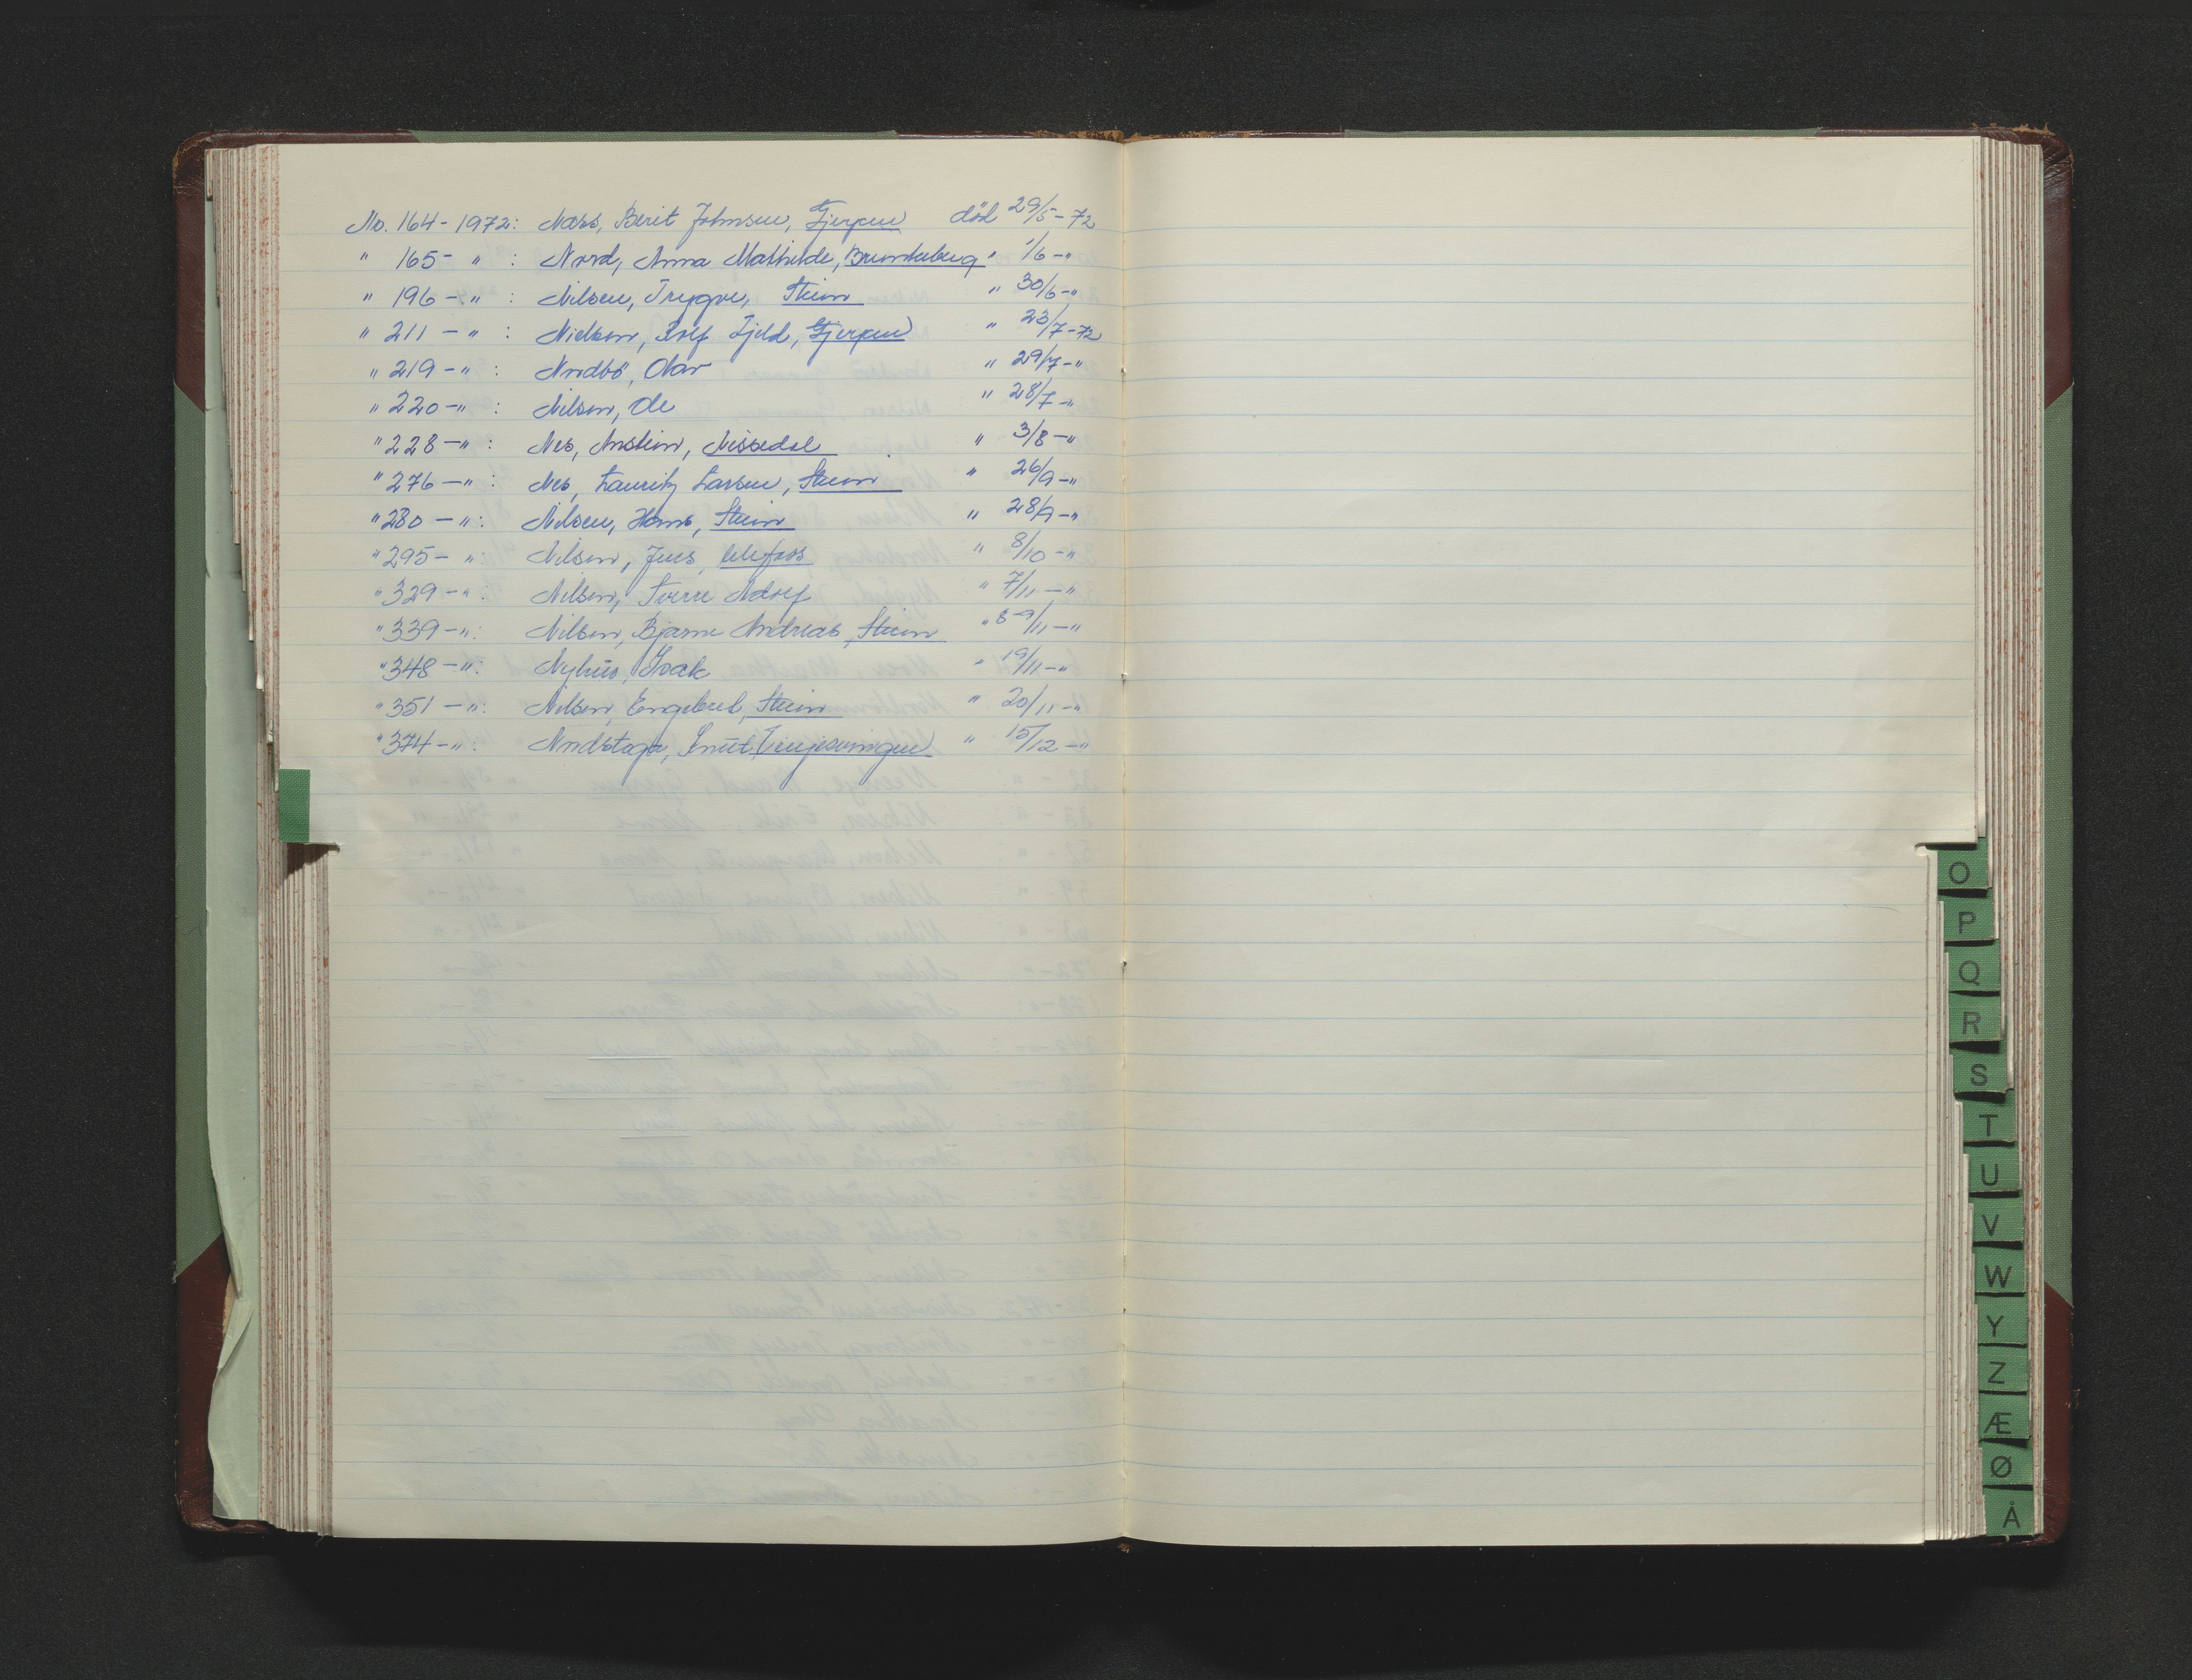 No. 164 - 1972: Næss, Berit Johnsen, Gjerpen død 29/5 - 72
" 165 - " : Nord, Anna Mathilde, " 1/6 - "
" 196 - " : Nilsen, Trygve, Skien " 30/6 - "
" 211 - " : Nielsen, Rolf Fjeld, Gjerpen " 23/7 - 72
" 219 - " : Nordbö, Olav " 29/7 - "
" 220 - " : Nilsen, Ole " 28/7 - "
" 228 - " : Nes, Anstein, Nissedal " 3/8 - "
" 276 - " : Nes, Lauritz Larsen, Skien " 26/9 - "
" 280 - " : Nilsen, Hans, Skien " 28/9 - "
" 295 - " : Nilsen, Jens, Ulefoss " 8/10 - "
" 329 - " : Nilsen, Sverre Adolf " 7/11 - "
" 339 - " : Nilsen, Bjarne Andreas, Skien " 8-9/11 - "
" 348 - " : Nyhus, Isak " 19/11 - "
" 351 - " : Nilsen, Engebret, Skien " 20/11 - "
" 374 - " : Nordstoga, Knut, " 15/12 - "
O
P
Q
R
S
T
U
V
W
Y
Z
Æ
Ø
Å